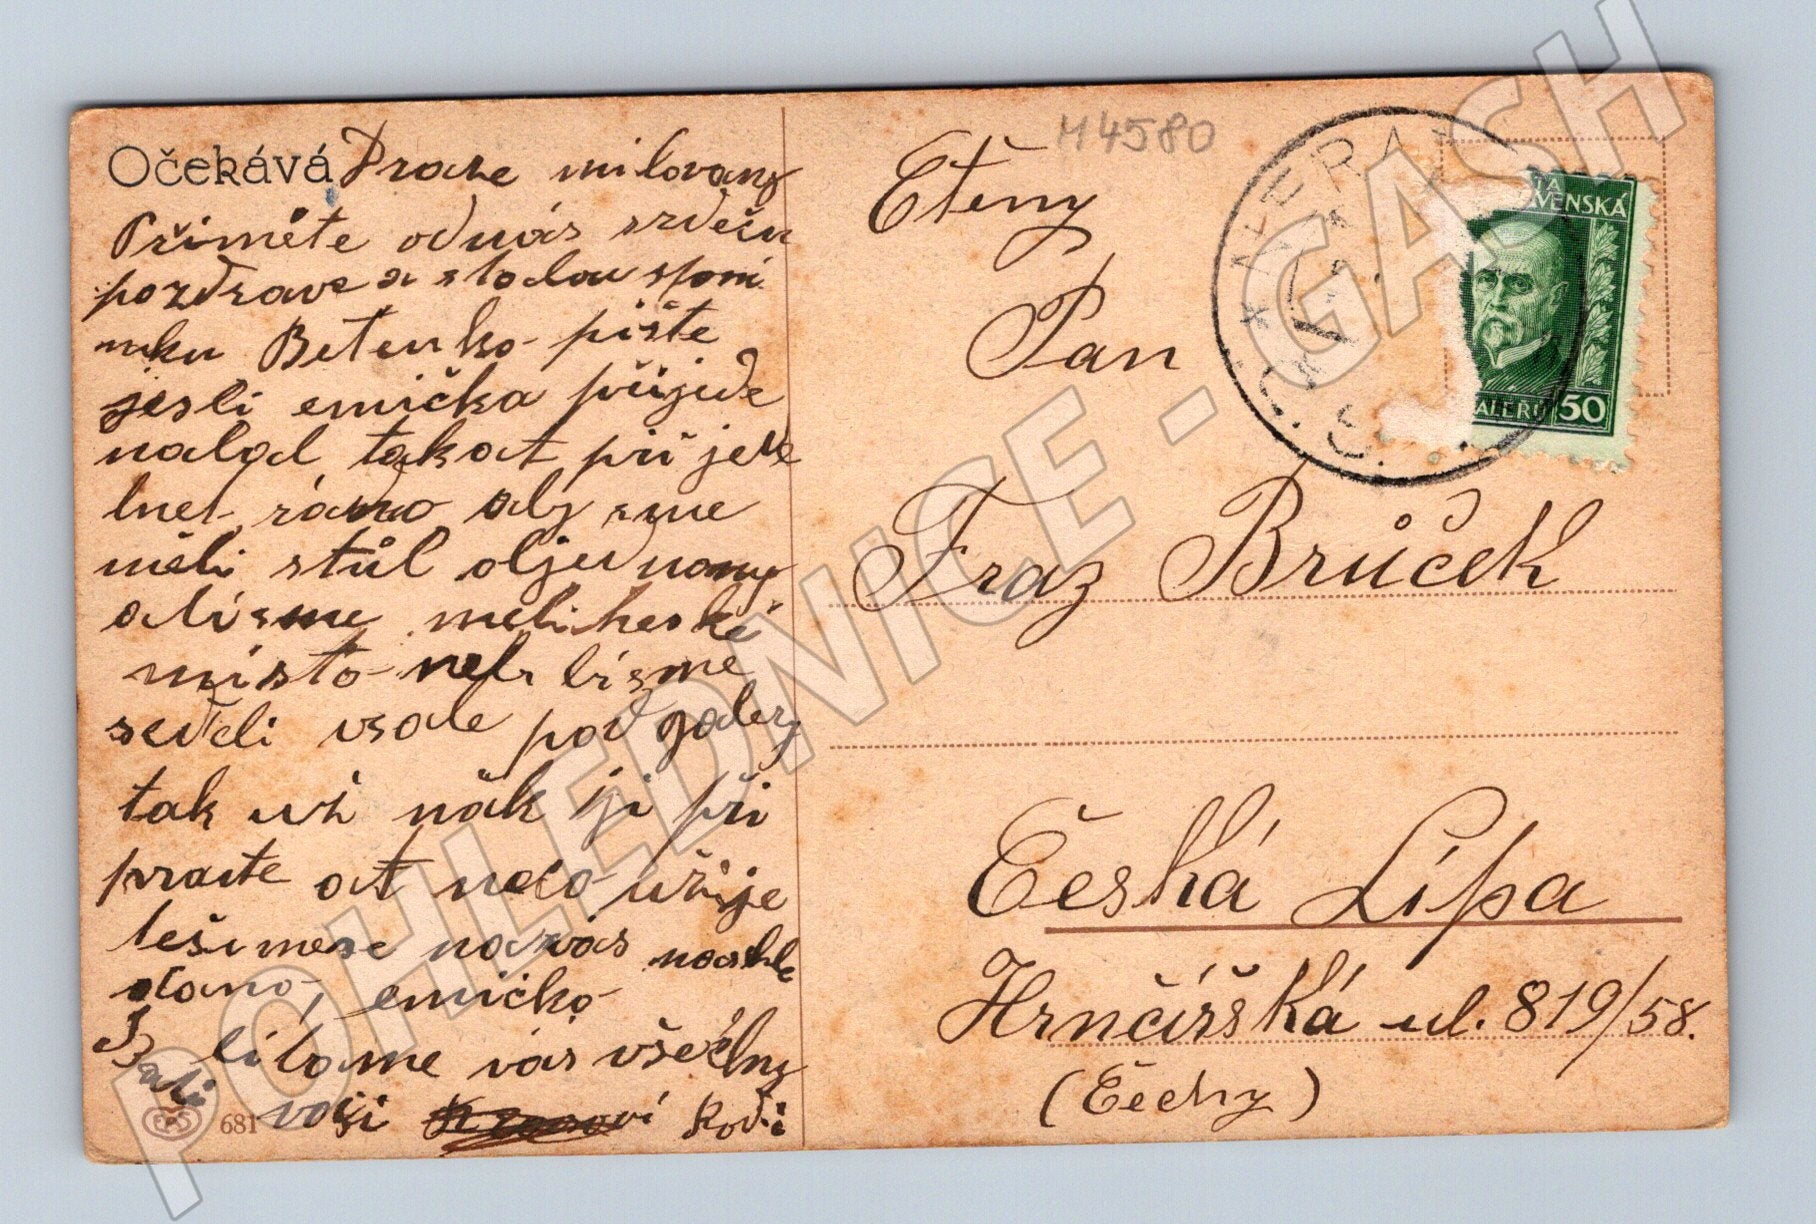 Očekává Draze milovany
Přiměte odnás srdešn
pozdrave a stodou spomi
nku Betuško pište
jesli emička přijede
nalad takat při jede
bnet ráno aby sme
měli stůl objednany
abisme meli heské
misto nebr bisme
seděli vsale pod galery
tak uži nák ji při
pravte at neco užije
tešimese navás nashle
danó, emičko
libame vás všechny
vaši Rodi
681
M4580
Cteny
Pan
Fraz Brůček
Česká Lípa
Hrnčířská ul. 819/58.
(Čechy)
VENSKÁ
HALÉRŮ 50
Č.S.
POHLEDNICE - GASH